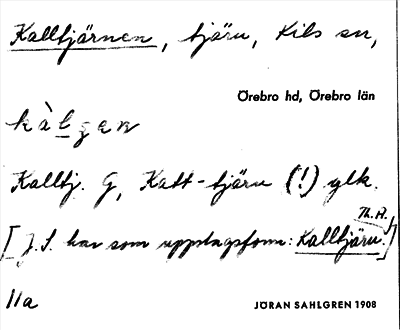 Kalltjärnen, tjärn, Kils sn,
Örebro hd, Örebro län
kàlgen
Kalltj. G, Katt-tjärn (!) glk.
Th. A.
[J. S. har som uppslagsform: Kalltjärn.]
11a
JÖRAN SAHLGREN 1908